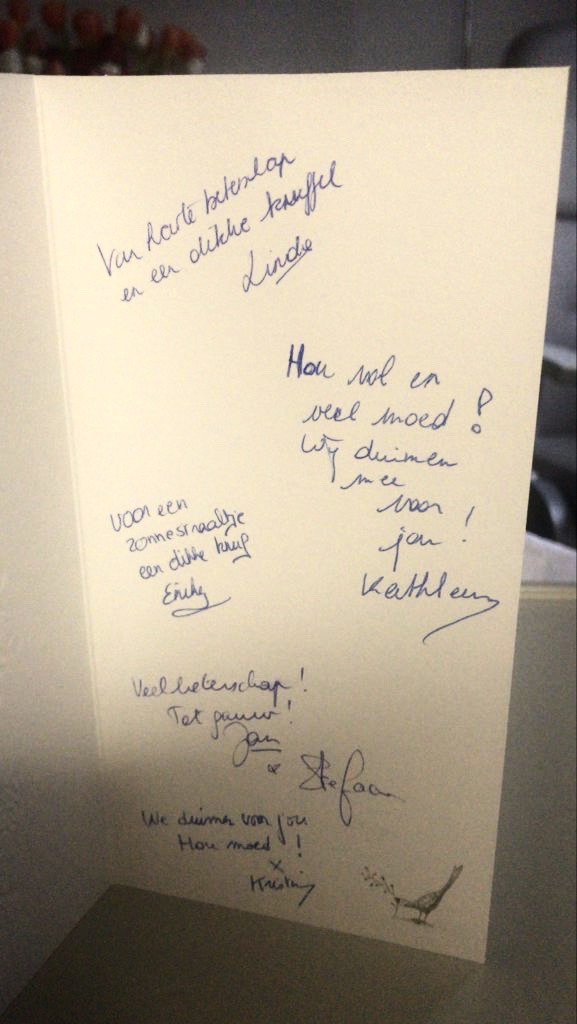 Van harte beterschap
en een dikke knuffel
Linde
Hou vol en
veel moed!
Wij duimen
mee
voor
jou!
Kathleen
voor een
zonnestraaltje
een dikke knuf
Veel beterschap!
Tot gauw!
Jan
&
Stefaan
We duimen voor jou
Hou moed!
x
Kristin